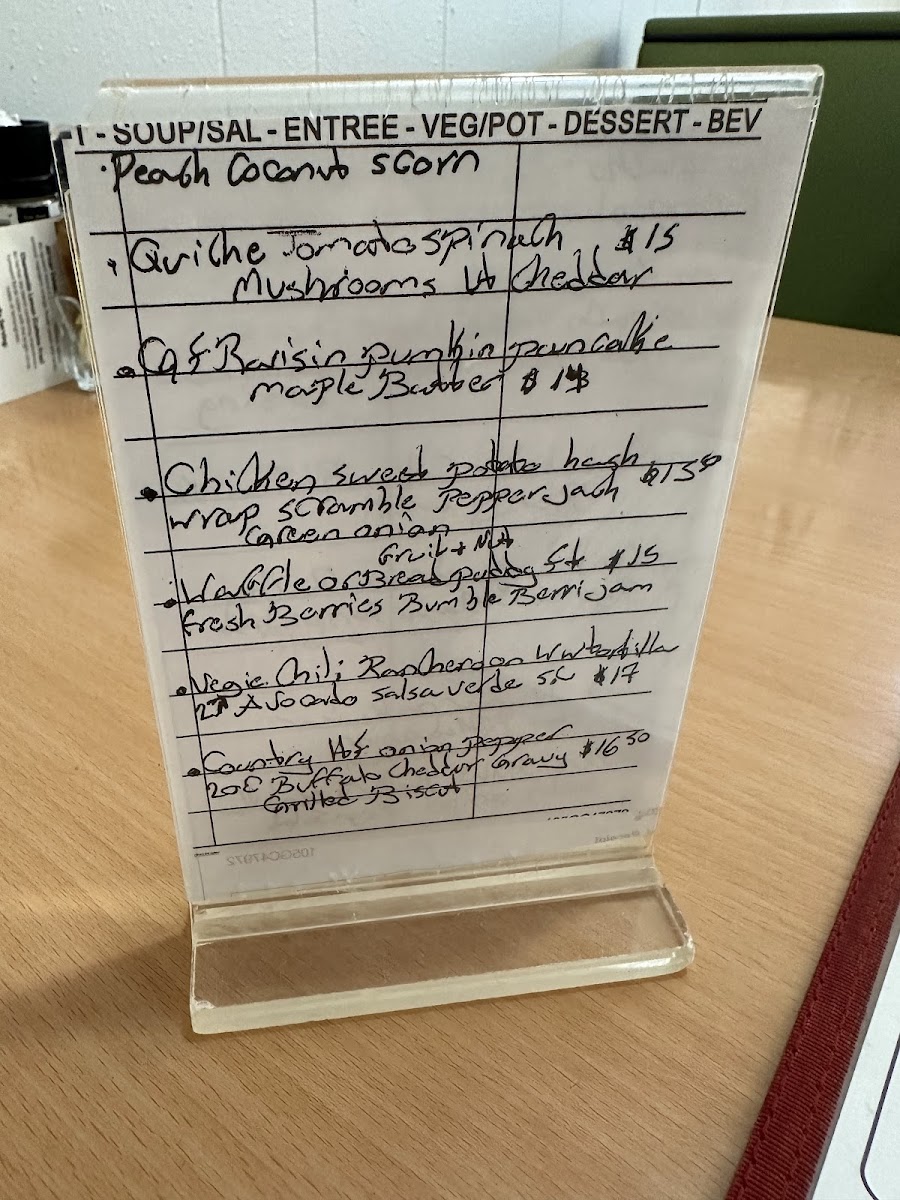 - SOUP/SAL - ENTREE - VEG/POT - DESSERT - BEV
Peach Coconut scorn
Quiche Tomato spinach $15
Mushrooms Wt Cheddar
Gf Raisin pumkin pancake
maple Butter $14
Chicken sweet potato hash $15 50
wrap scramble pepper jach
Green onion
Fruit + Nut
Waffle or Bread puddg Ft $15
fresh Berries Bumble Berri jam
Vegie Chili Ranchero on Ww tortilla
2E Avocado salsa verde sc $17
Country Hf onion pepper
2oE Buffalo Cheddar Gravy $16 50
Grilled Biscut
105GC47972